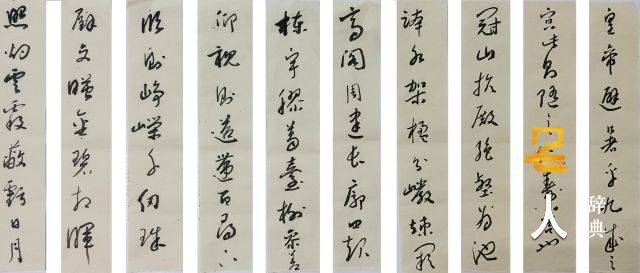 皇帝避暑乎九成之
宫此則隋之仁壽宫也
冠山抗殿絶壑為池
跨水架楹分巖竦闕
高閣周建長廊四起
棟宇膠葛臺榭參差
仰視則迢遞百尋下
臨則崢嶸千仞珠
璧交暎金碧相暉
照灼雲霞蔽虧日月
辞典